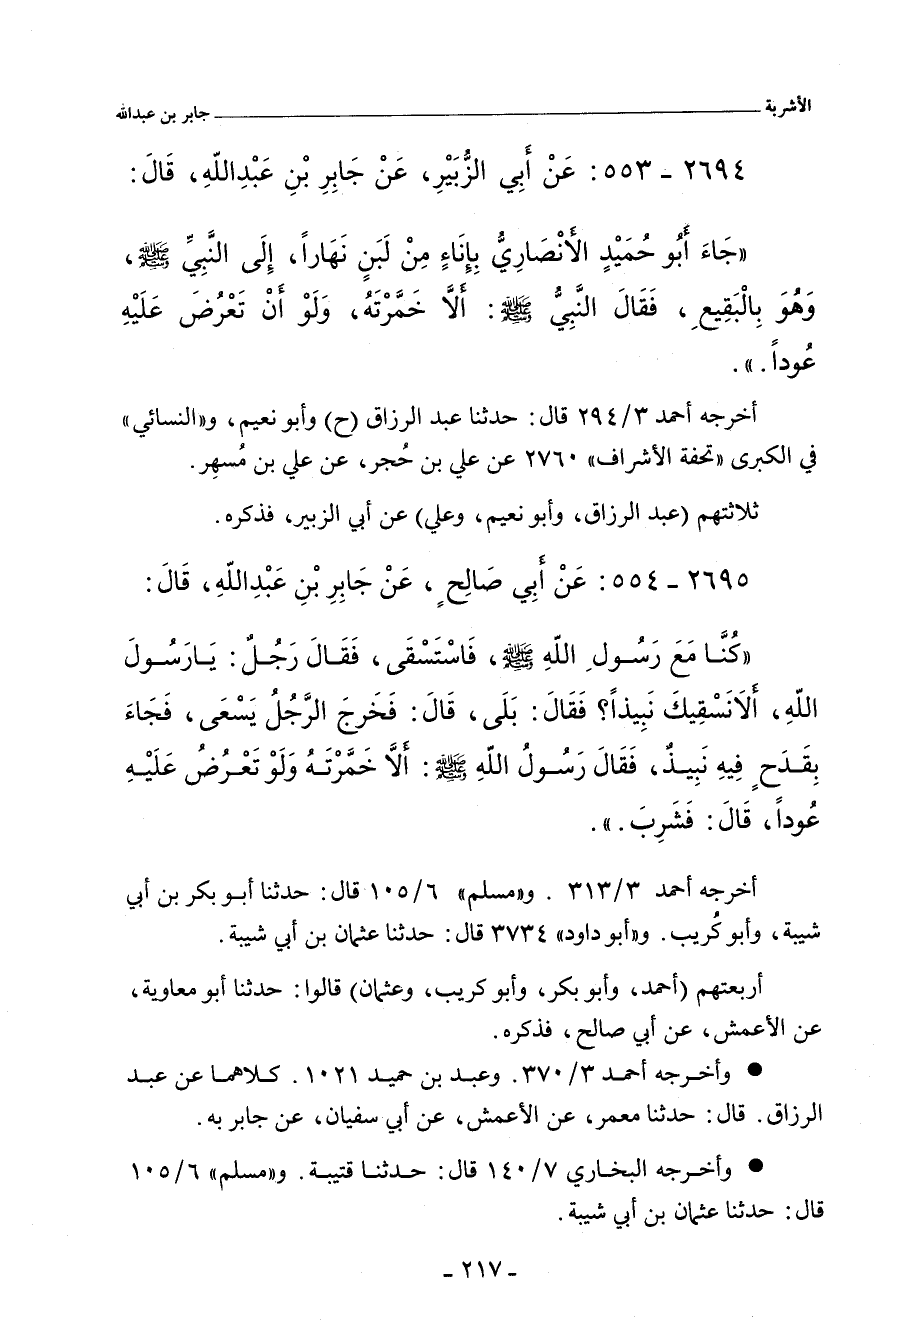 الأشربة ـــــــــــــــــــــــــــــــــــــــــــــ جابر بن عبدالله
٢٦٩٤ ـ ٥٥٣: عَنْ أَبِي الزُّبَيْرِ، عَنْ جَابِرِ بْنِ عَبْدِاللّهِ، قَالَ:
«جَاءَ أَبُو حُمَيْدٍ الأَنْصَارِيُّ بِإِنَاءٍ مِنْ لَبَنٍ نَهَاراً، إِلَى النَّبِيِّ ﷺ،
وَهُوَ بِالْبَقِيعِ، فَقَالَ النَّبِيُّ ﷺ: أَلَّا خَمَّرْتَهُ، وَلَوْ أَنْ تَعْرُضَ عَلَيْهِ
عُوداً.».
أخرجه أحمد ٢٩٤/٣ قال: حدثنا عبد الرزاق (ح) وأبو نعيم، و«النسائي»
في الكبرى «تحفة الأشراف» ٢٧٦٠ عن علي بن حُجر، عن علي بن مُسهِر.
ثلاثتهم (عبد الرزاق، وأبو نعيم، وعلي) عن أبي الزبير، فذكره.
٢٦٩٥ ـ ٥٥٤: عَنْ أَبِي صَالِحٍ، عَنْ جَابِرِ بْنِ عَبْدِاللّهِ، قَالَ:
«كُنَّا مَعَ رَسُولِ اللّهِ ﷺ، فَاسْتَسْقَى، فَقَالَ رَجُلٌ: يَارَسُولَ
اللّهِ، أَلَانَسْقِيكَ نَبِيذاً؟ فَقَالَ: بَلَى، قَالَ: فَخَرجَ الرَّجُلُ يَسْعَى، فَجَاءَ
بِقَدَحٍ فِيهِ نَبِيذٌ، فَقَالَ رَسُولُ اللّهِ ﷺ: أَلَّا خَمَّرْتَهُ وَلَوْ تَعْرُضُ عَلَيْهِ
عُوداً، قَالَ: فَشَرِبَ.».
أخرجه أحمد ٣١٣/٣ . و«مسلم» ١٠٥/٦ قال: حدثنا أبو بكر بن أبي
شيبة، وأبو كُريب. و«أبو داود» ٣٧٣٤ قال: حدثنا عثمان بن أبي شيبة.
أربعتهم (أحمد، وأبو بكر، وأبو كريب، وعثمان) قالوا: حدثنا أبو معاوية،
عن الأعمش، عن أبي صالح، فذكره.
● وأخرجه أحمد ٣٧٠/٣. وعبد بن حميد ١٠٢١. كلاهما عن عبد
الرزاق. قال: حدثنا معمر، عن الأعمش، عن أبي سفيان، عن جابر به.
● وأخرجه البخاري ١٤٠/٧ قال: حدثنا قتيبة. و«مسلم» ١٠٥/٦
قال: حدثنا عثمان بن أبي شيبة.
ـ ٢١٧ ـ